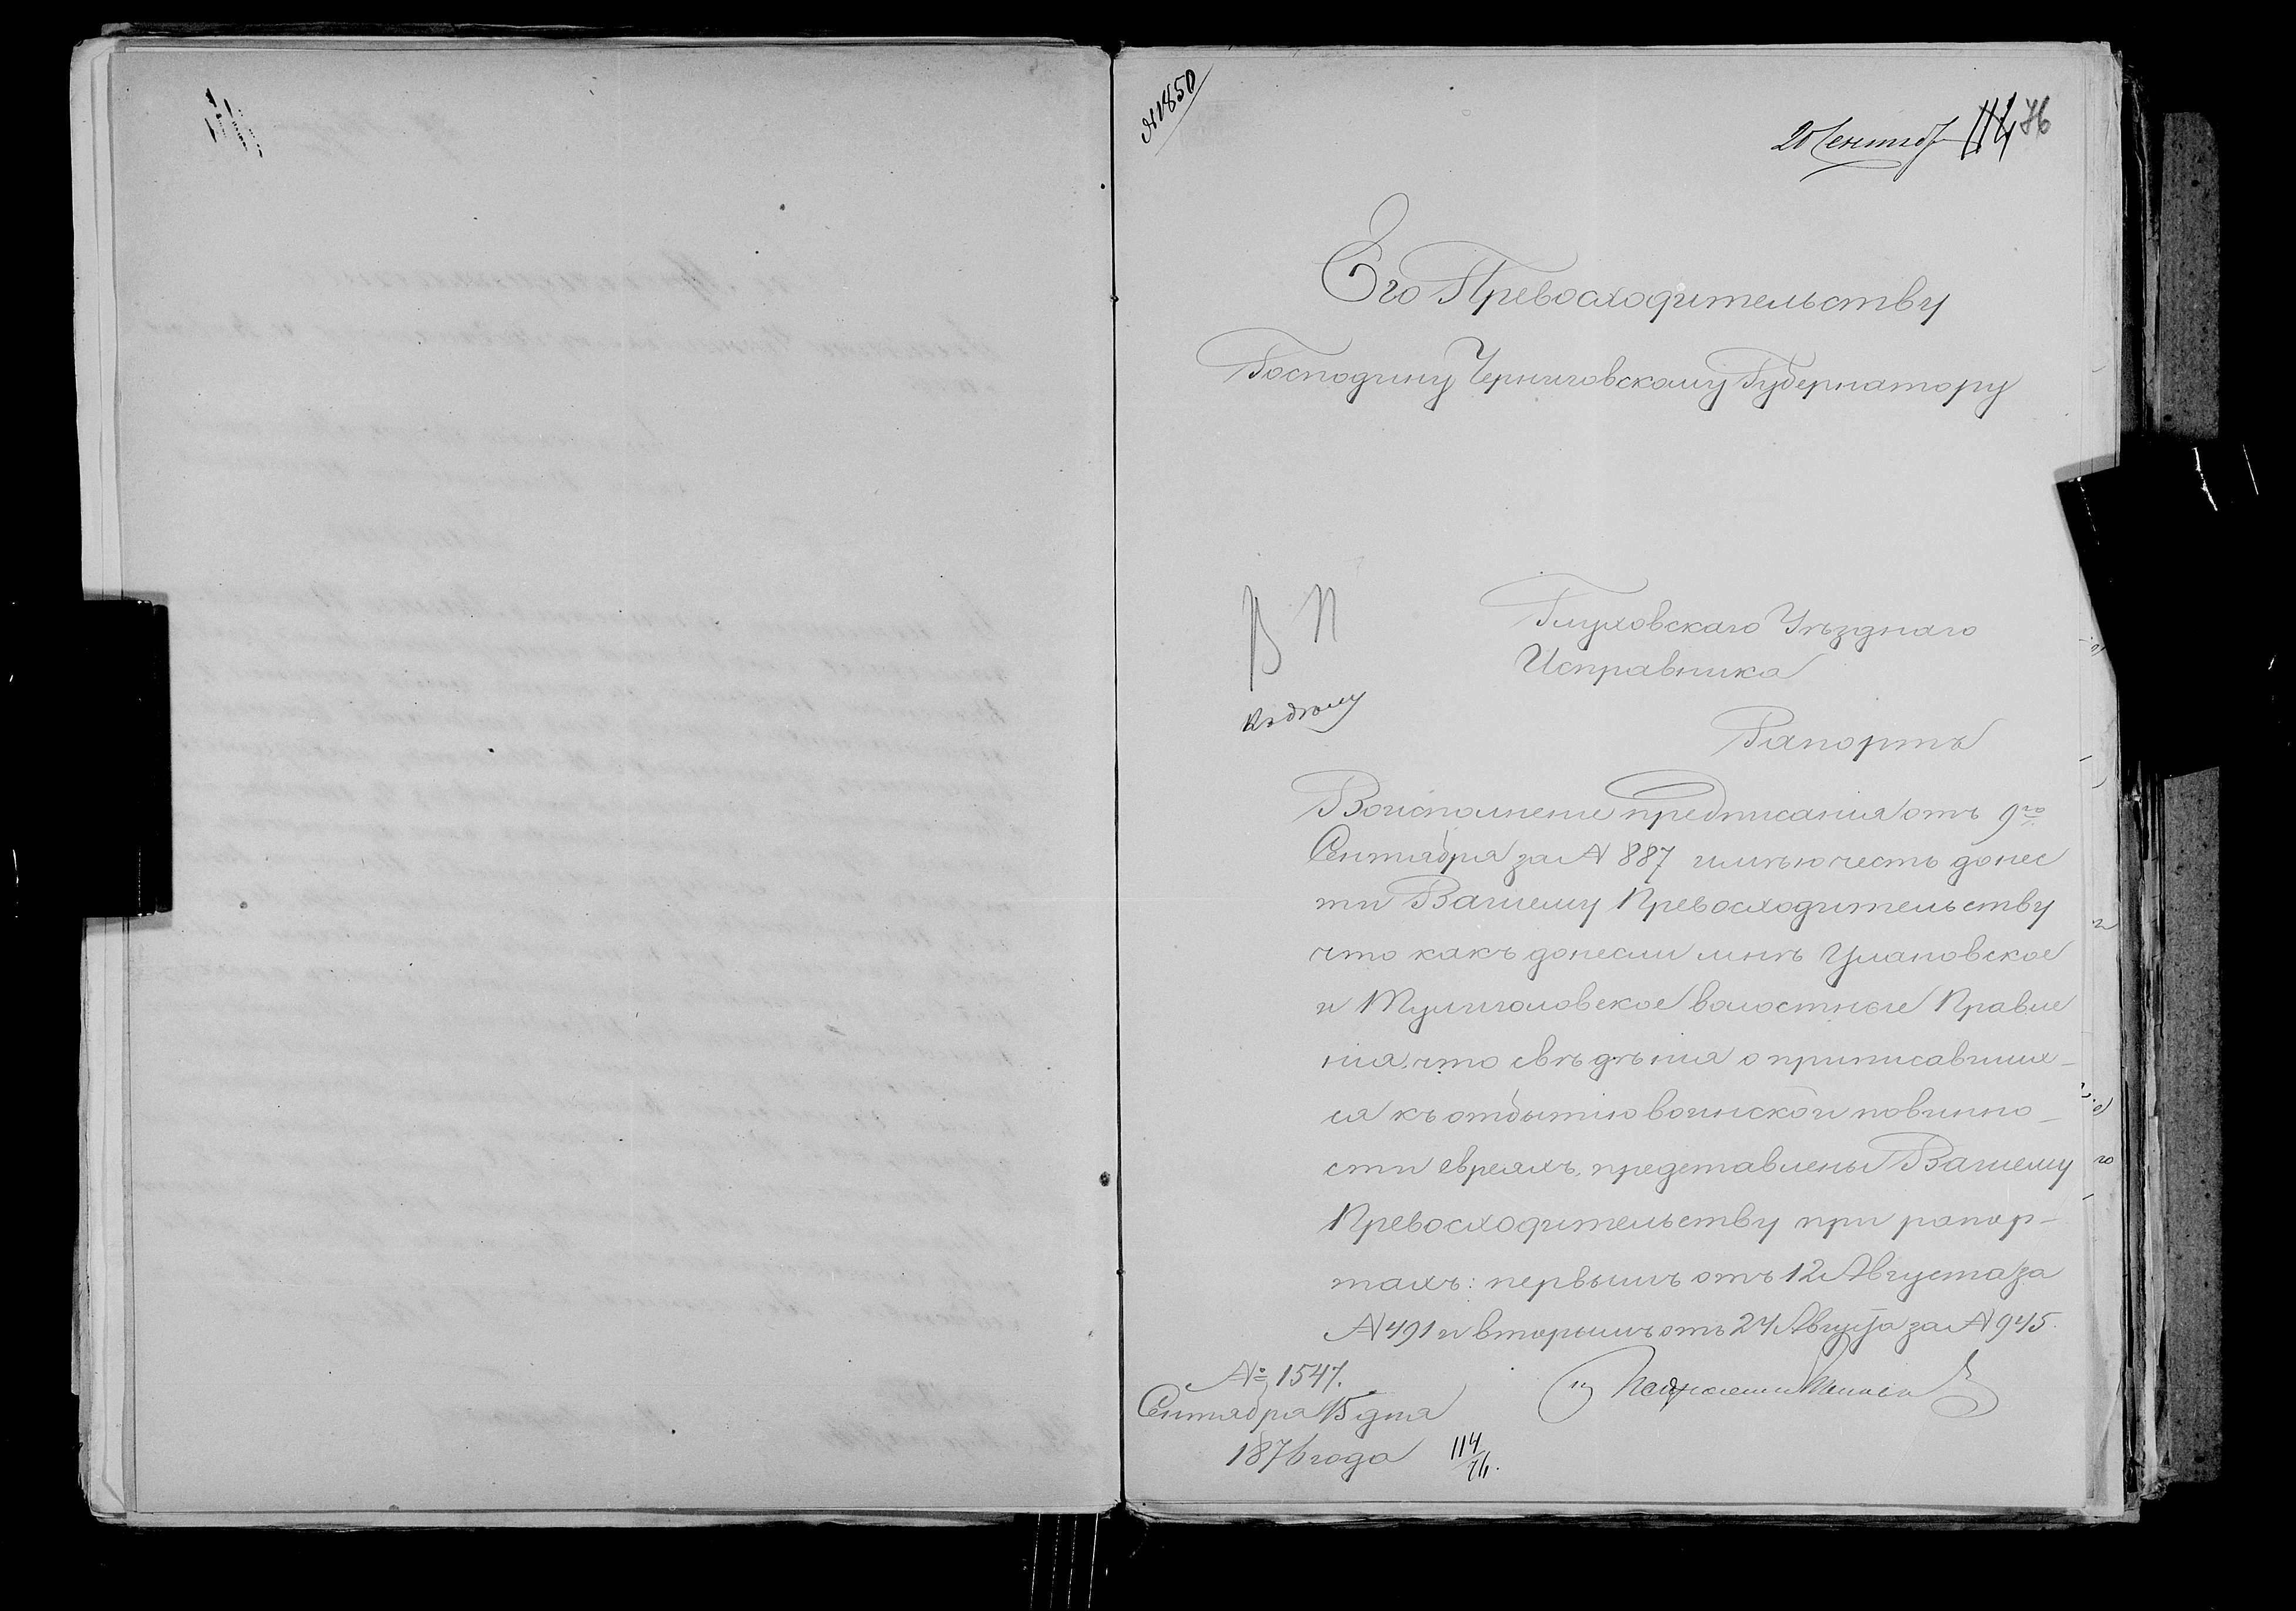 № 1850
20 Сентяб
114 76
Его Превосходительству
Господину Черниговскому Губернатору
В П
Къ дѣлу
Глуховскаго Уѣзднаго
Исправника
Рапортъ
Воисполнение предписания отъ 9го
Сентября за № 887 имѣю честь донес
ти Вашему Превосходительству
что какъ донесли мнѣ Улановское
и Тулиголовское волостные Правле
ния, что свѣдѣния о приписавших-
ся къ отбытию воинской повинно-
сти евреяхъ, представлены Вашему
Превосходительству при рапор-
тахъ: первымъ отъ 12 Августа за
№ 491 и вторымъ отъ 24 Августа за № 945.
№ 1547.
Сентября 15 дня
1876 года
114/76.